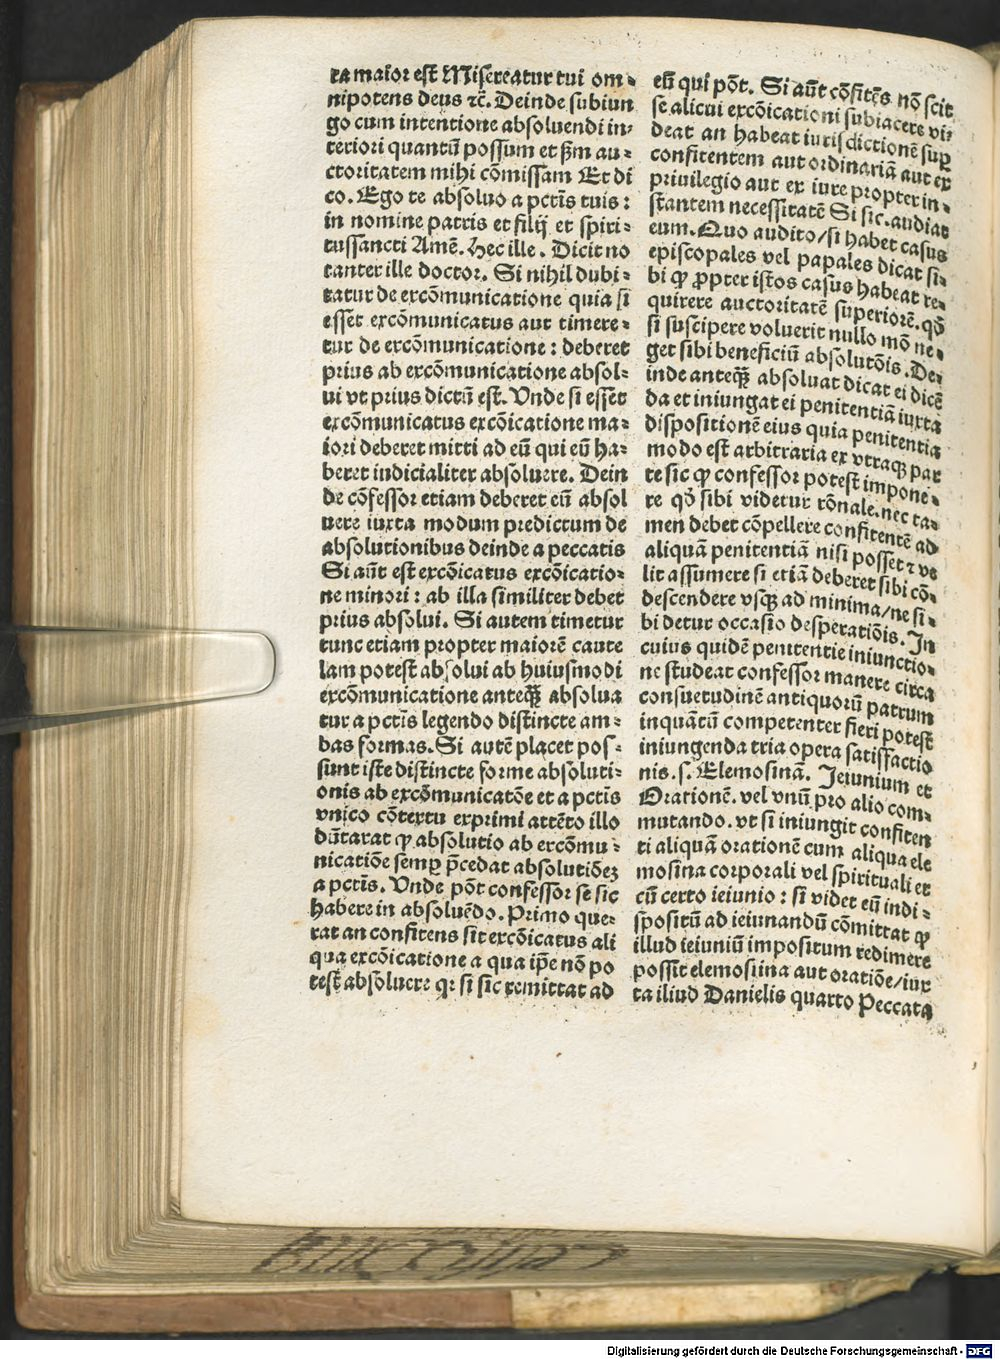 ta maior est Misereatur tui om⸗
nipotens deus ⁊c̄. Deinde subiun
go cum intentione absoluendi in⸗
teriori quantū possum et ẜm au⸗
ctoritatem mihi cōmissam Et di
co. Ego te absoluo a pctīs tuis:
in nomine patris et filij et spiri⸗
tussancti Amē. Hec ille. Dicit no
tanter ille doctor. Si nihil dubi⸗
tatur de excōmunicatione quia si
esset excōmunicatus aut timere⸗
tur de excōmunicatione: deberet
prius ab excōmunicatione absol⸗
ui vt prius dictū est. Vnde si esset
excōmunicatus excōicatione ma⸗
iori deberet mitti ad eū qui eū ha⸗
beret iudicialiter absoluere. Dein
de cōfessor etiam deberet eū absol
uere iuxta modum predictum de
absolutionibus deinde a peccatis
Si aūt est excōicatus excōicatio⸗
ne minori: ab illa similiter debet
prius absolui. Si autem timetur
tunc etiam propter maiorē caute
lam potest absolui ab huiusmodi
excōmunicatione anteqꝫ absolua
tur a pctīs legendo distincte am⸗
bas formas. Si autē placet pos⸗
sunt iste distincte forme absoluti⸗
onis ab excōmunicatōe et a pctīs
vnico cōtextu exprimi attēto illo
dūtaxat ꝙ absolutio ab excōmu⸗
nicatiōe semꝑ p̄cedat absolutiōeꝫ
a pctīs. Vnde pōt confessor se sic
habere in absoluēdo. Primo que⸗
rat an confitens sit excōicatus ali
qua excōicatione a qua ip̄e nō po
test absoluere qꝛ si sic remittat ad
eū qui pōt. Si aūt cōfitēs nō scit
se alicui excōicationi subiacere vi⸗
deat an habeat iurisdictionē suꝑ
confitentem aut ordinariā aut ex
priuilegio aut ex iure propter in⸗
stantem necessitatē Si sic. audiat
eum. Quo audito/si habet casus
episcopales vel papales dicat si⸗
bi ꝙ ꝓpter istos casus habeat re⸗
quirere auctoritatē superiorē. qō
si suscipere voluerit nullo mō ne⸗
get sibi beneficiū absolutōis. De⸗
inde anteqꝫ absoluat dicat ei dicē
da et iniungat ei penitentiā iuxta
dispositionē eius quia penitentia
modo est arbitraria ex vtraqꝫ par
te sic ꝙ confessor potest impone⸗
re qō sibi videtur rōnale. nec ta⸗
men debet cōpellere confitentē ad
aliquā penitentiā nisi posset ⁊ ve
lit assumere si etiā deberet sibi cō⸗
descendere vsqꝫ ad minima/ne si⸗
bi detur occasio desperatiōis. In
cuius quidē penitentie iniunctio⸗
ne studeat confessor manere circa
consuetudinē antiquorū patrum
inquātū competenter fieri potest
iniungenda tria opera satisfactio
nis. s. Elemosinā. Jeiunium et
Orationē. vel vnū pro alio com⸗
mutando. vt si iniungit confiten
ti aliquā orationē cum aliqua ele
mosina corporali vel spirituali et
cū certo ieiunio: si videt eū indi⸗
spositū ad ieiunandū cōmittat ꝙ
illud ieiuniū impositum redimere
possit elemosina aut oratiōe/iux
ta illud Danielis quarto Peccata
Digitalisierung gefördert durch die Deutsche Forschungsgemeinschaft - DFG